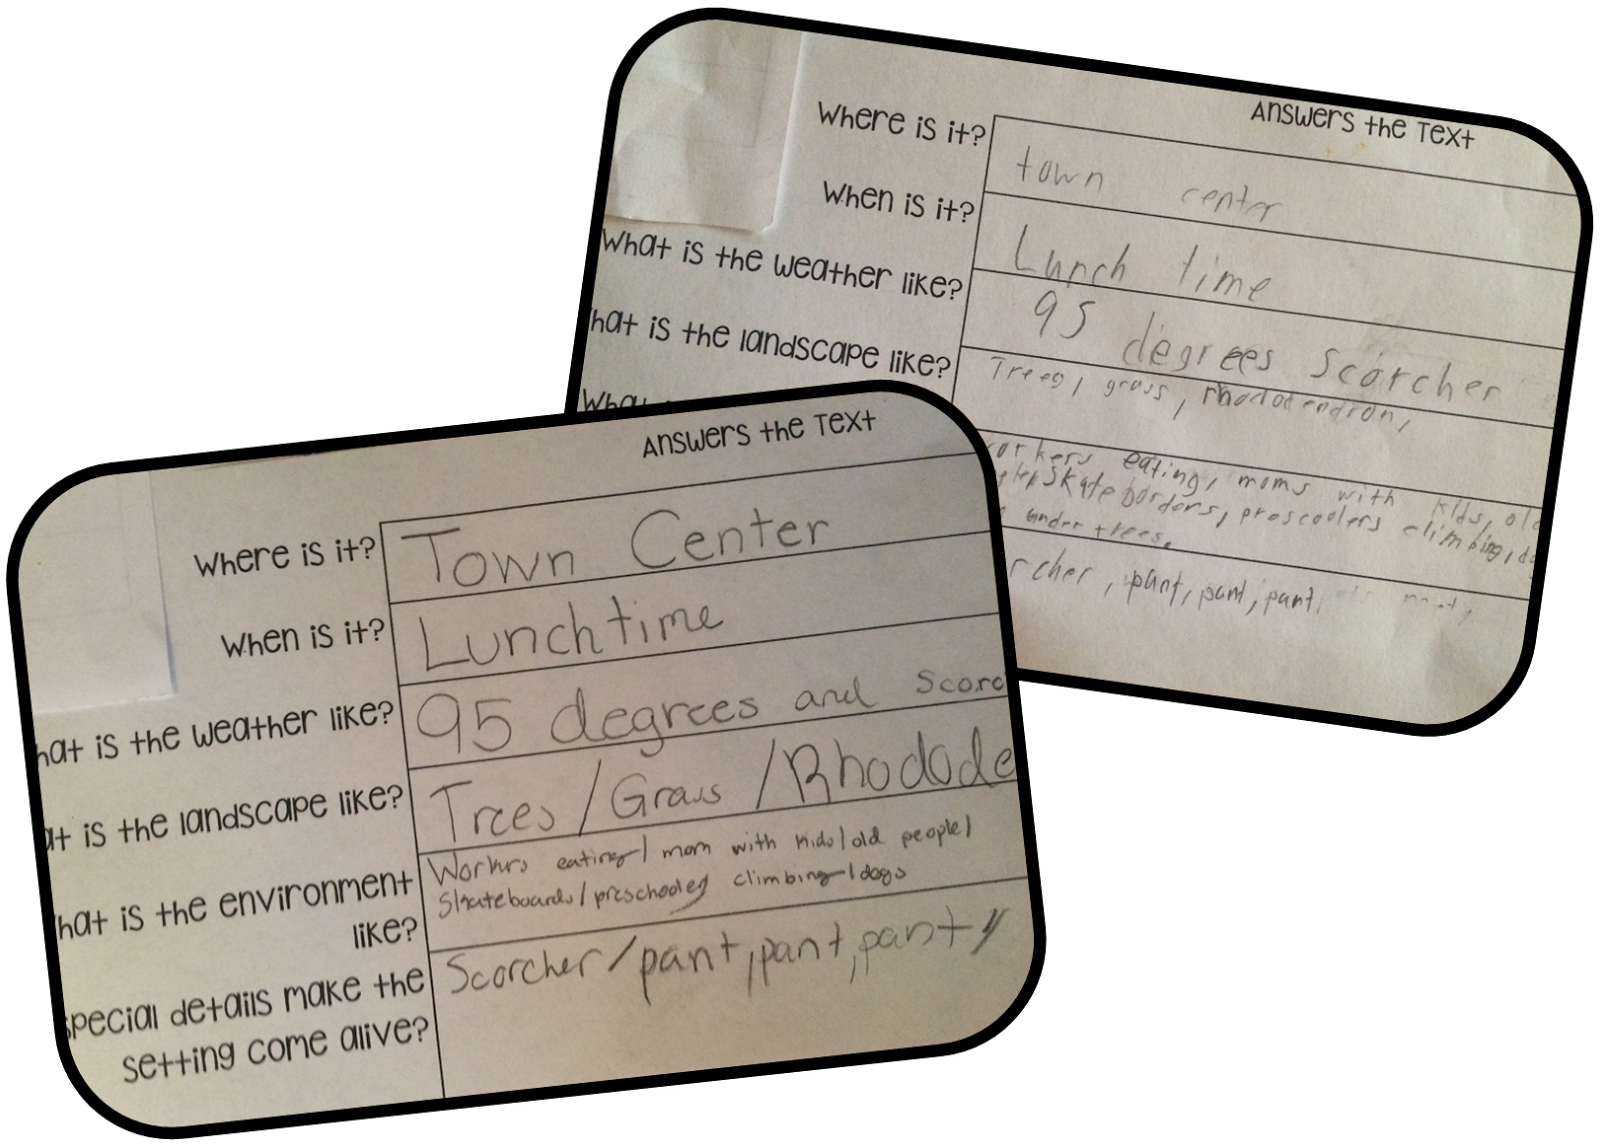 Answers the Text
Where is it?
town center
When is it?
Lunch time
What is the weather like?
95 degrees Scorcher
hat is the landscape like?
Trees, grass, rhododendron,
What
orkers eating, moms with kids, old
Skate borders, prescoolers climbing, do
under trees.
rcher, pant, pant, pant,
Answers the Text
Where is it?
Town Center
When is it?
Lunchtime
hat is the weather like?
95 degrees and Scorc
at is the landscape like?
Trees / Grass / Rhodode
hat is the environment
like?
Workrs eating / mom with kids / old people /
Skateboards / preschooler climbing / dogs
special details make the
setting come alive?
Scorcher / pant, pant, pant